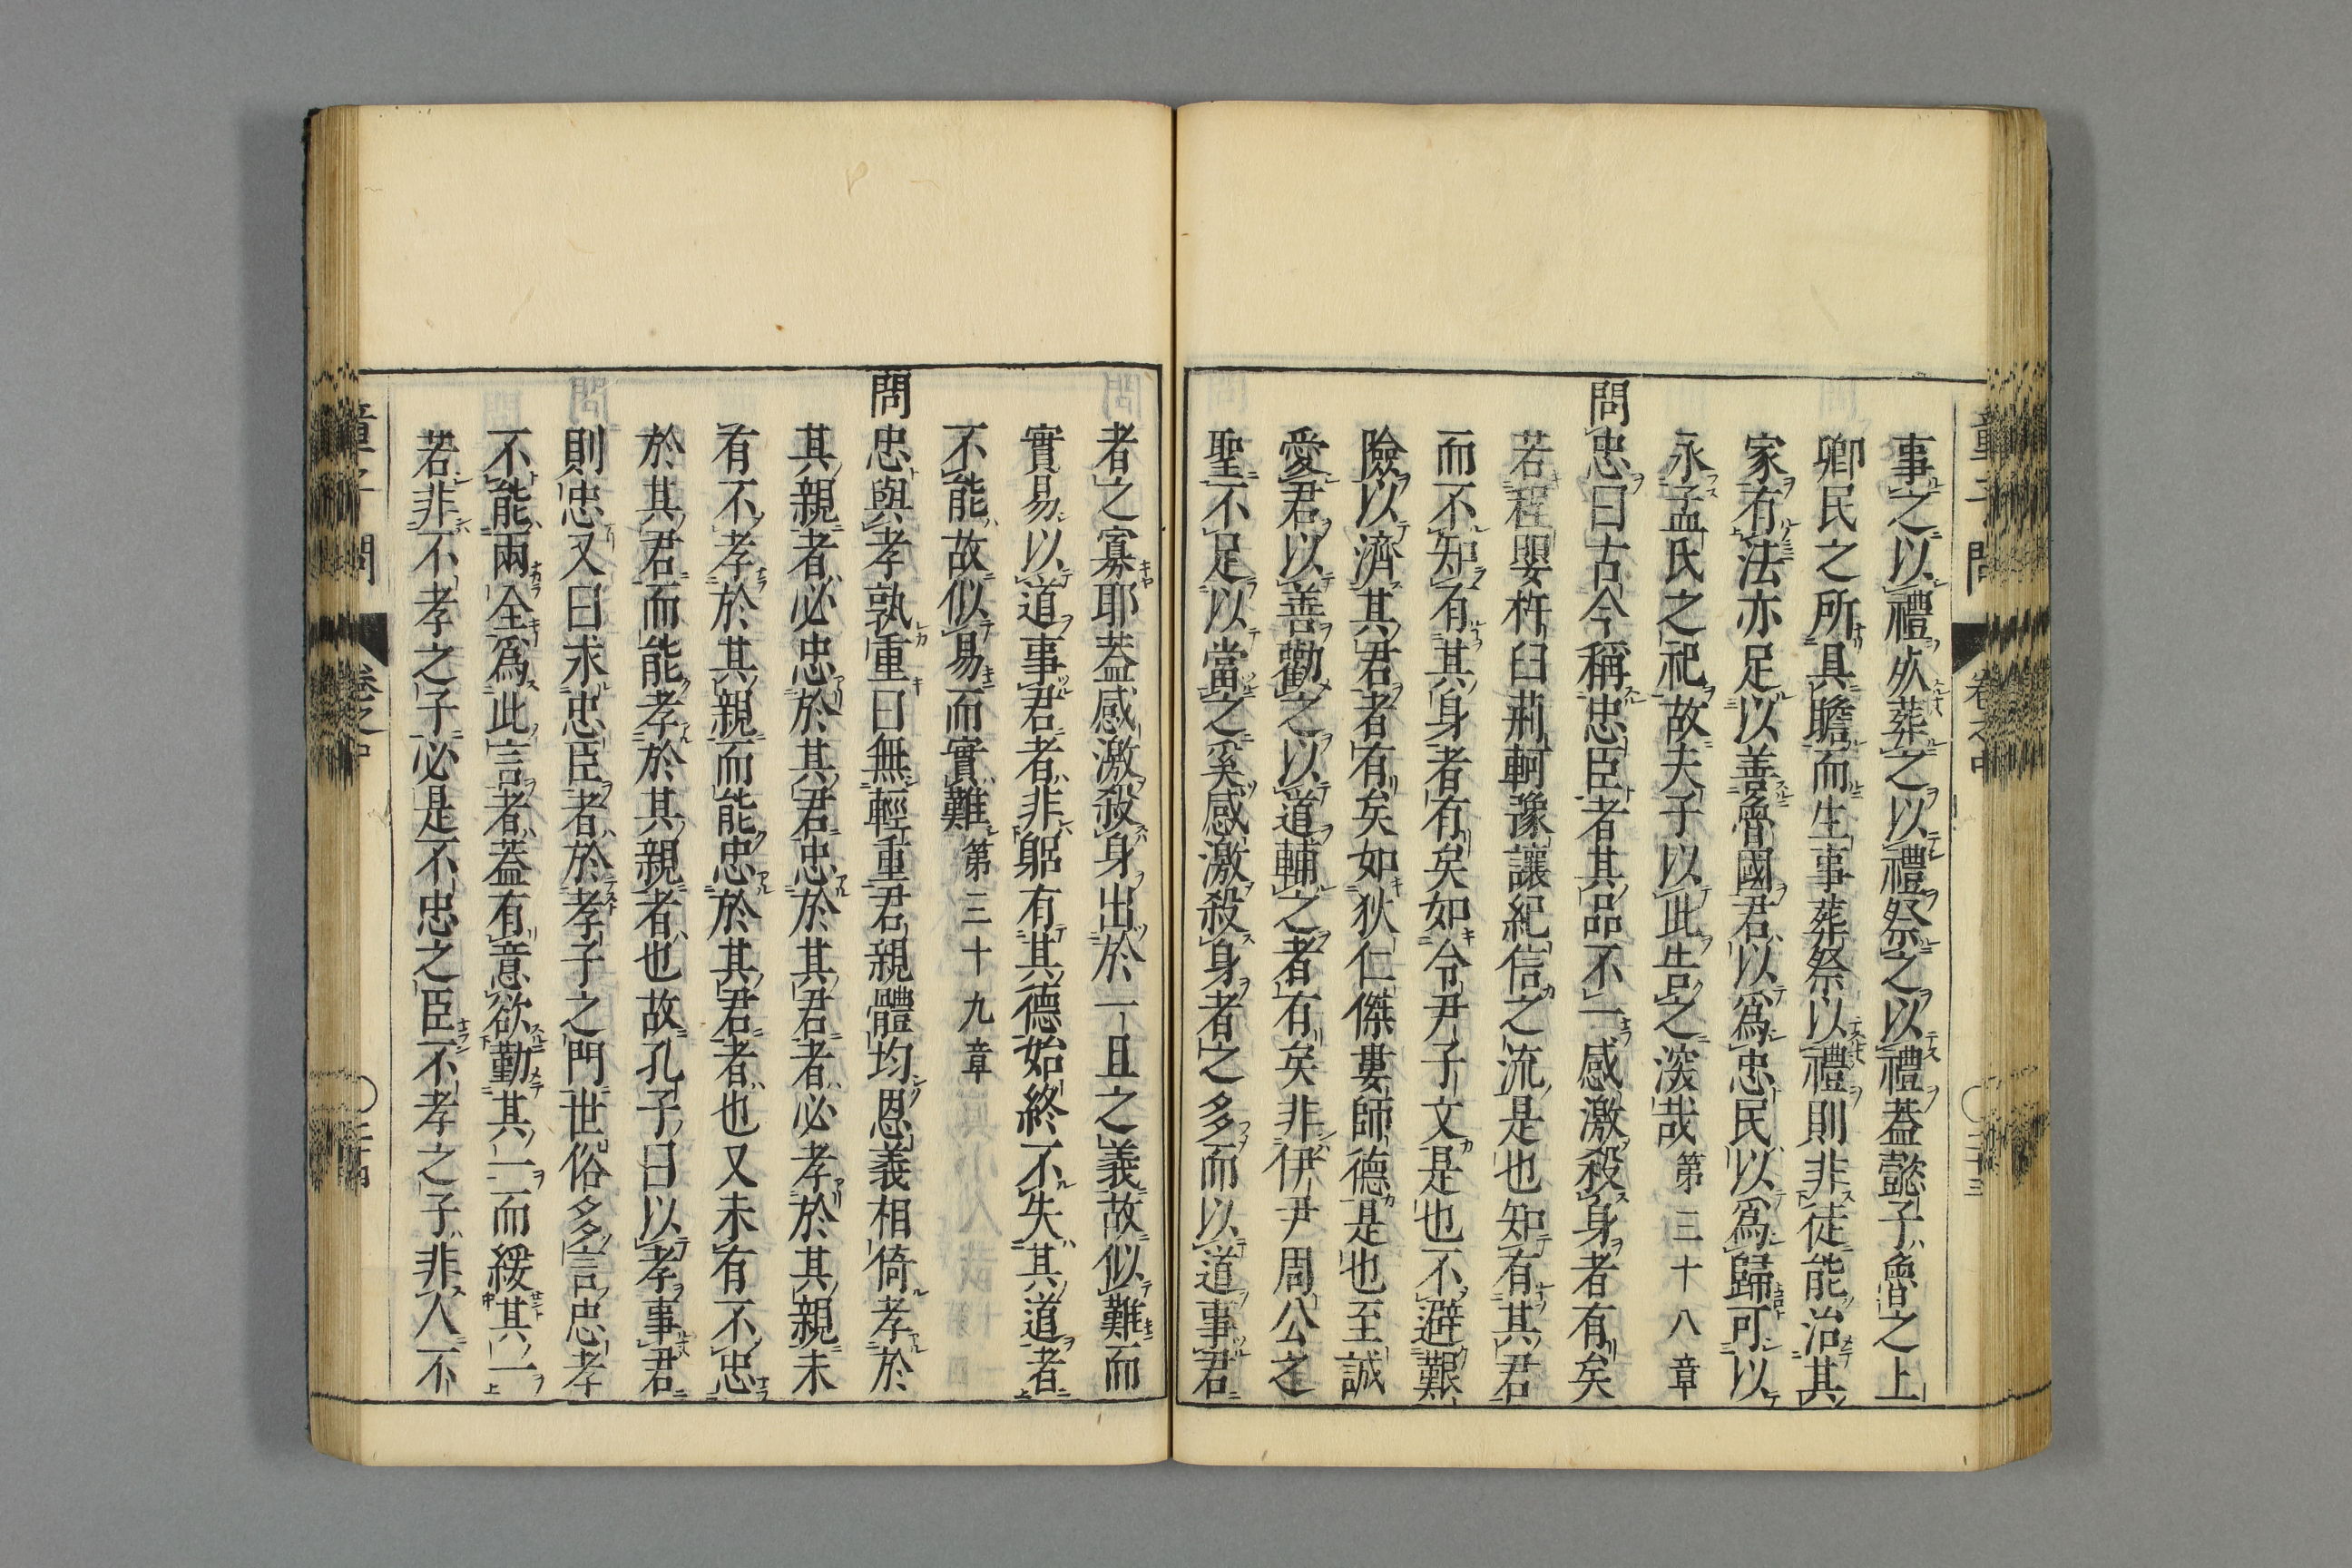 事之以禮死葬之以禮祭之以禮蓋懿子魯之上
卿民之所具瞻而生事葬祭以禮則非徒能治其
家有法亦足以善魯國君以為忠民以為歸可以
永孟氏之祀故夫子以此告之深哉第三十八章
問忠曰古今稱忠臣者其品不一感激殺身者有矣
若程嬰杵臼荊軻豫讓紀信之流是也知有其君
而不知有其身者有矣如令尹子文是也不避艱
險以濟其君者有矣如狄仁傑婁師德是也至誠
愛君以善勸之以道輔之者有矣非伊尹周公之
聖不足以當之奚感激殺身者之多而以道事君
者之寡耶蓋感激殺身出於一旦之義故似難而
實易以道事君者非躬有其德始終不失其道者
不能故似易而實難第三十九章
問忠與孝孰重曰無輕重君親體均恩義相倚孝於
其親者必忠於其君忠於其君者必孝於其親未
有不孝於其親而能忠於其君者也又未有不忠
於其君而能孝於其親者也故孔子曰以孝事君
則忠又曰求忠臣者於孝子之門世俗多言忠孝
不能兩全為此言者蓋有意欲勤其一而緩其一
若非不孝之子必是不忠之臣不孝之子非人不
童子問
卷之中
三十三
童子問
卷之中
三十四